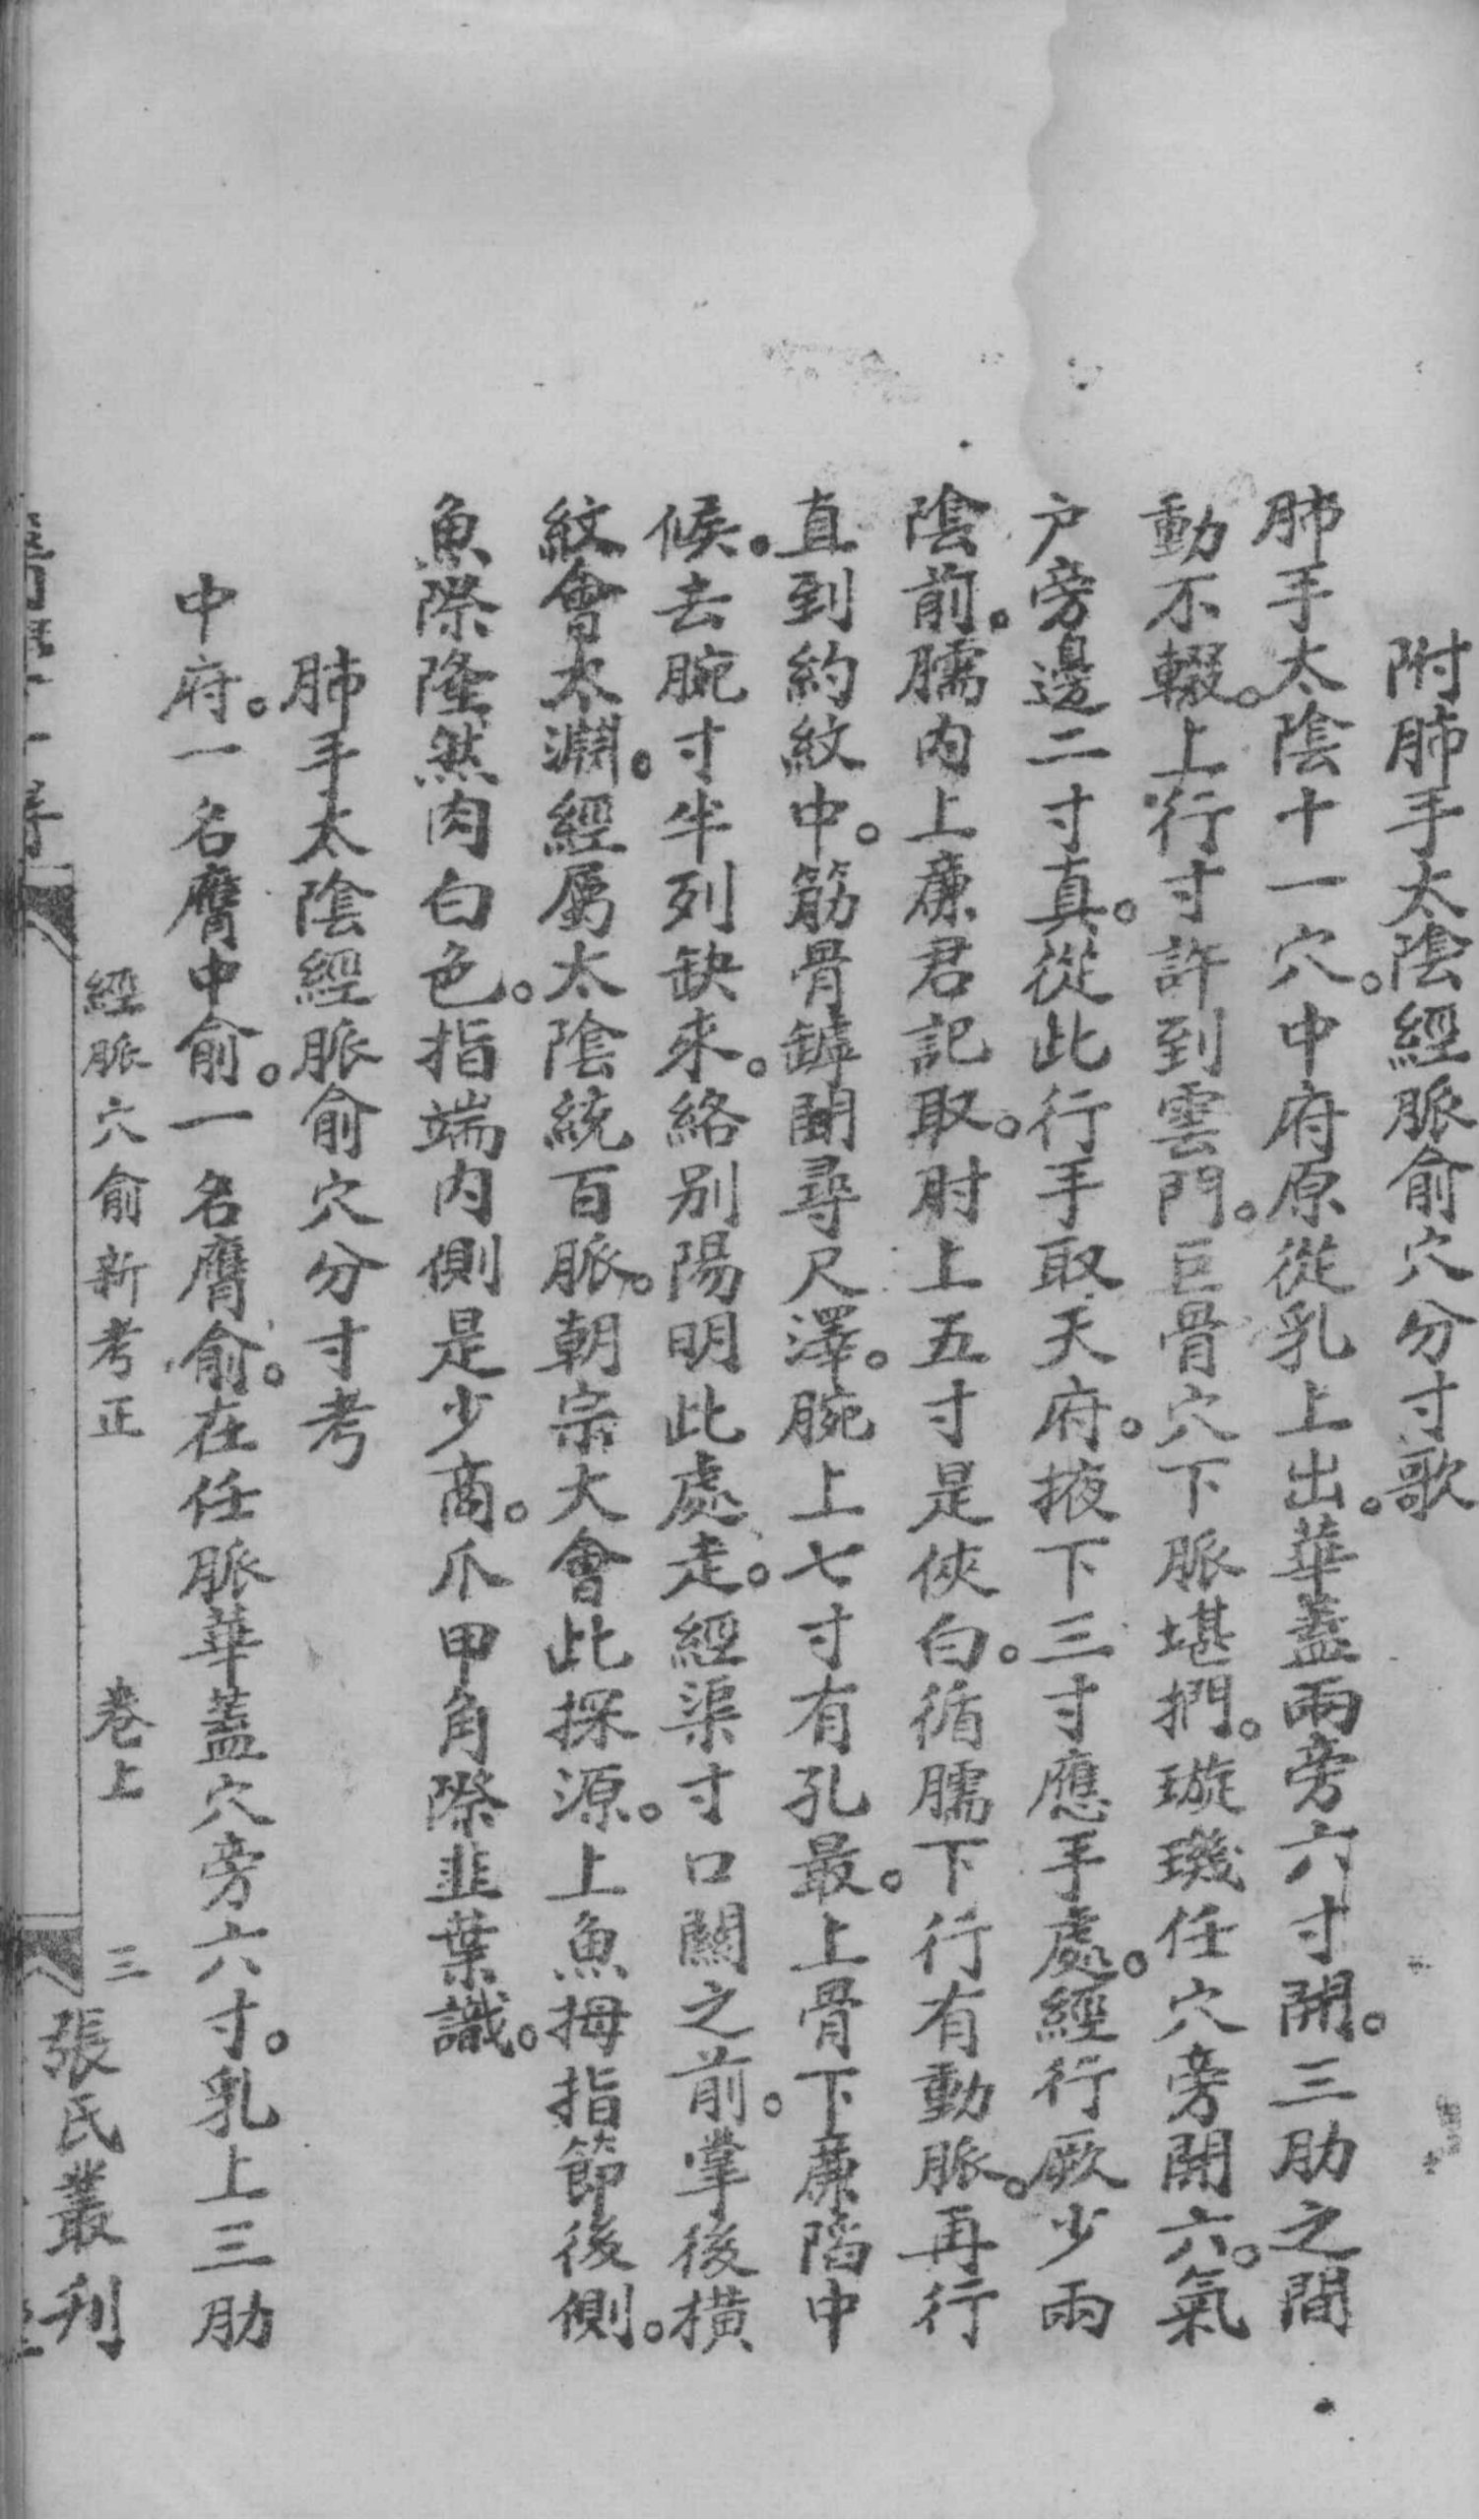 附肺手太陰經脈俞穴分寸歌
肺手太陰十一穴。中府原從乳上出。華蓋兩旁六寸開。三肋之間
動不輟。上行寸許到雲門。巨骨穴下脈堪捫。璇璣任穴旁開六。氣
户旁邊二寸真。從此行手取天府。掖下三寸應手處。經行厥少兩
陰前。臑內上廉君記取。肘上五寸是俠白。循臑下行有動脈。再行
直到約紋中。筋骨罅間尋尺澤。腕上七寸有孔最。上骨下廉陷中
候。去腕寸半列缺來。絡別陽明此處走。經渠寸口關之前。掌後橫
紋會太淵。經屬太陰統百脈。朝宗大會此探源。上魚拇指節後側。
魚際隆然肉白色。指端內側是少商。爪甲角際韭葉識。
肺手太陰經脈俞穴分寸考
中府。一名膺中俞。一名膺俞。在任脈華蓋穴旁六寸。乳上三肋
經脈穴俞新考正
卷上
三
張氏叢刋